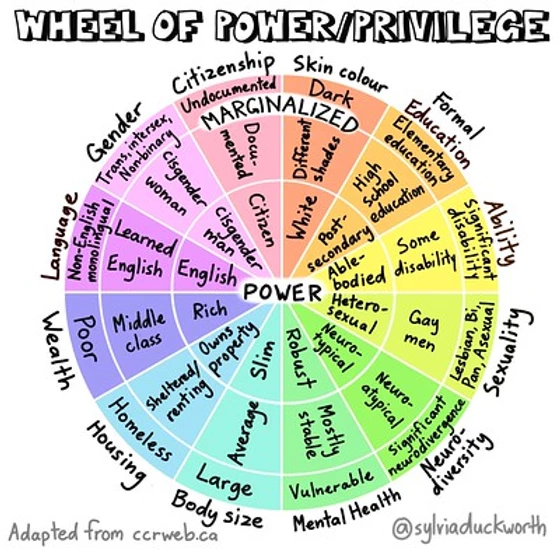 WHEEL OF POWER/PRIVILEGE
Citizenship
Undocumented
Docu-
mented
Citizen
Skin colour
Dark
Different
shades
White
Formal
Education
Elementary
education
High
school
education
Post-
secondary
Ability
Significant
disability
Some
disability
Able-
bodied
Sexuality
Lesbian, Bi,
Pan, Asexual
Gay
men
Hetero-
sexual
Neuro-
diversity
Significant
neurodivergence
Neuro-
atypical
Neuro-
typical
Mental Health
Vulnerable
Mostly
stable
Robust
Body size
Large
Average
Slim
Housing
Homeless
Sheltered/
renting
Owns
property
Wealth
Poor
Middle
class
Rich
Language
Non-English
monolingual
Learned
English
English
Gender
Trans, intersex,
Nonbinary
Cisgender
woman
Cisgender
man
MARGINALIZED
POWER
Adapted from ccrweb.ca
@sylviaduckworth